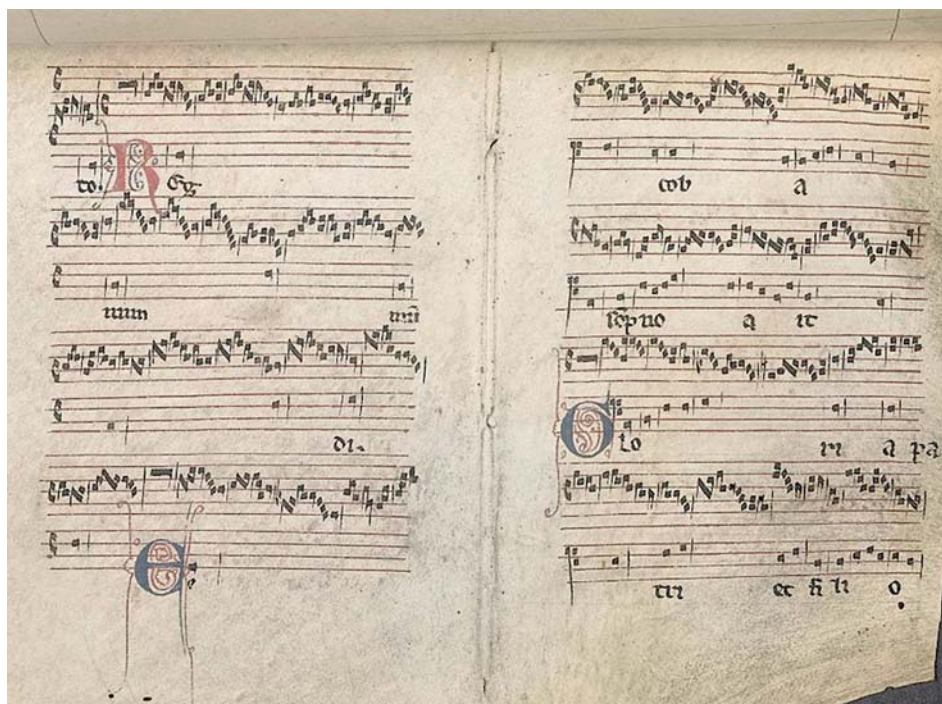 to. Reg
num mū
di.
E
cob a
sōpno a it
Glo ri a pa
tri et fi li o